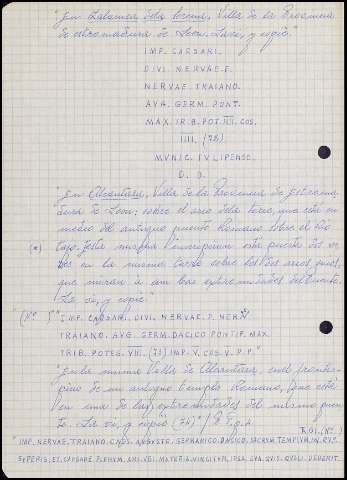 "En Zalamea dela Serena, Villa de la Provincia
de estremadura de Leon. Leese, y copié."
IMP. CAESARI.
DIVI. NERVAE. F.
NERVAE. TRAIANO.
AVG. GERM. PONT.
MAX. TR. B. POT. III. COS.
IIII. (72)
MVNIC. IVLIPENSE.
D. D.
"En Alcantara, Villa de la Provincia de Estrema
dura de Leon: sobre el arco dela torre, que está en
medio del antiguo puente Romano sobre el Rio
(*) tajo. Jesta misma Inscripcion está puesta dos ve
zes en la misma sobre los dos arcos
que miran á am bas extremidades del Puente.
La vi, y copié"
"(Nº 5" IMP. CAESARI. DIVI. NERVAE. F. NERV
TRAIANO. AVG. GERM. DACICO PONTIF. MAX.
TRIB. POTES. VIII. (73) IMP. V. COS. V. P. P."
"En la misma Villa de Alcantara, en el frontis-
picio de un antiguo templo Romano, que está
en una de las extremidades del mismo puen-
te. La vi, y copié (74)"
"IMP. NERVAE. TRAIANO. AVGVSTO. GERMANICO. DACICO. SACRVM TEMPLVM. IN. RVPE.
SVPERIS. ET. CAESARE PLENVM. ARS. VBI. MATERIA. VINCITVR. IPSA. SVA. QVIS. QVALI. DEDERIT.